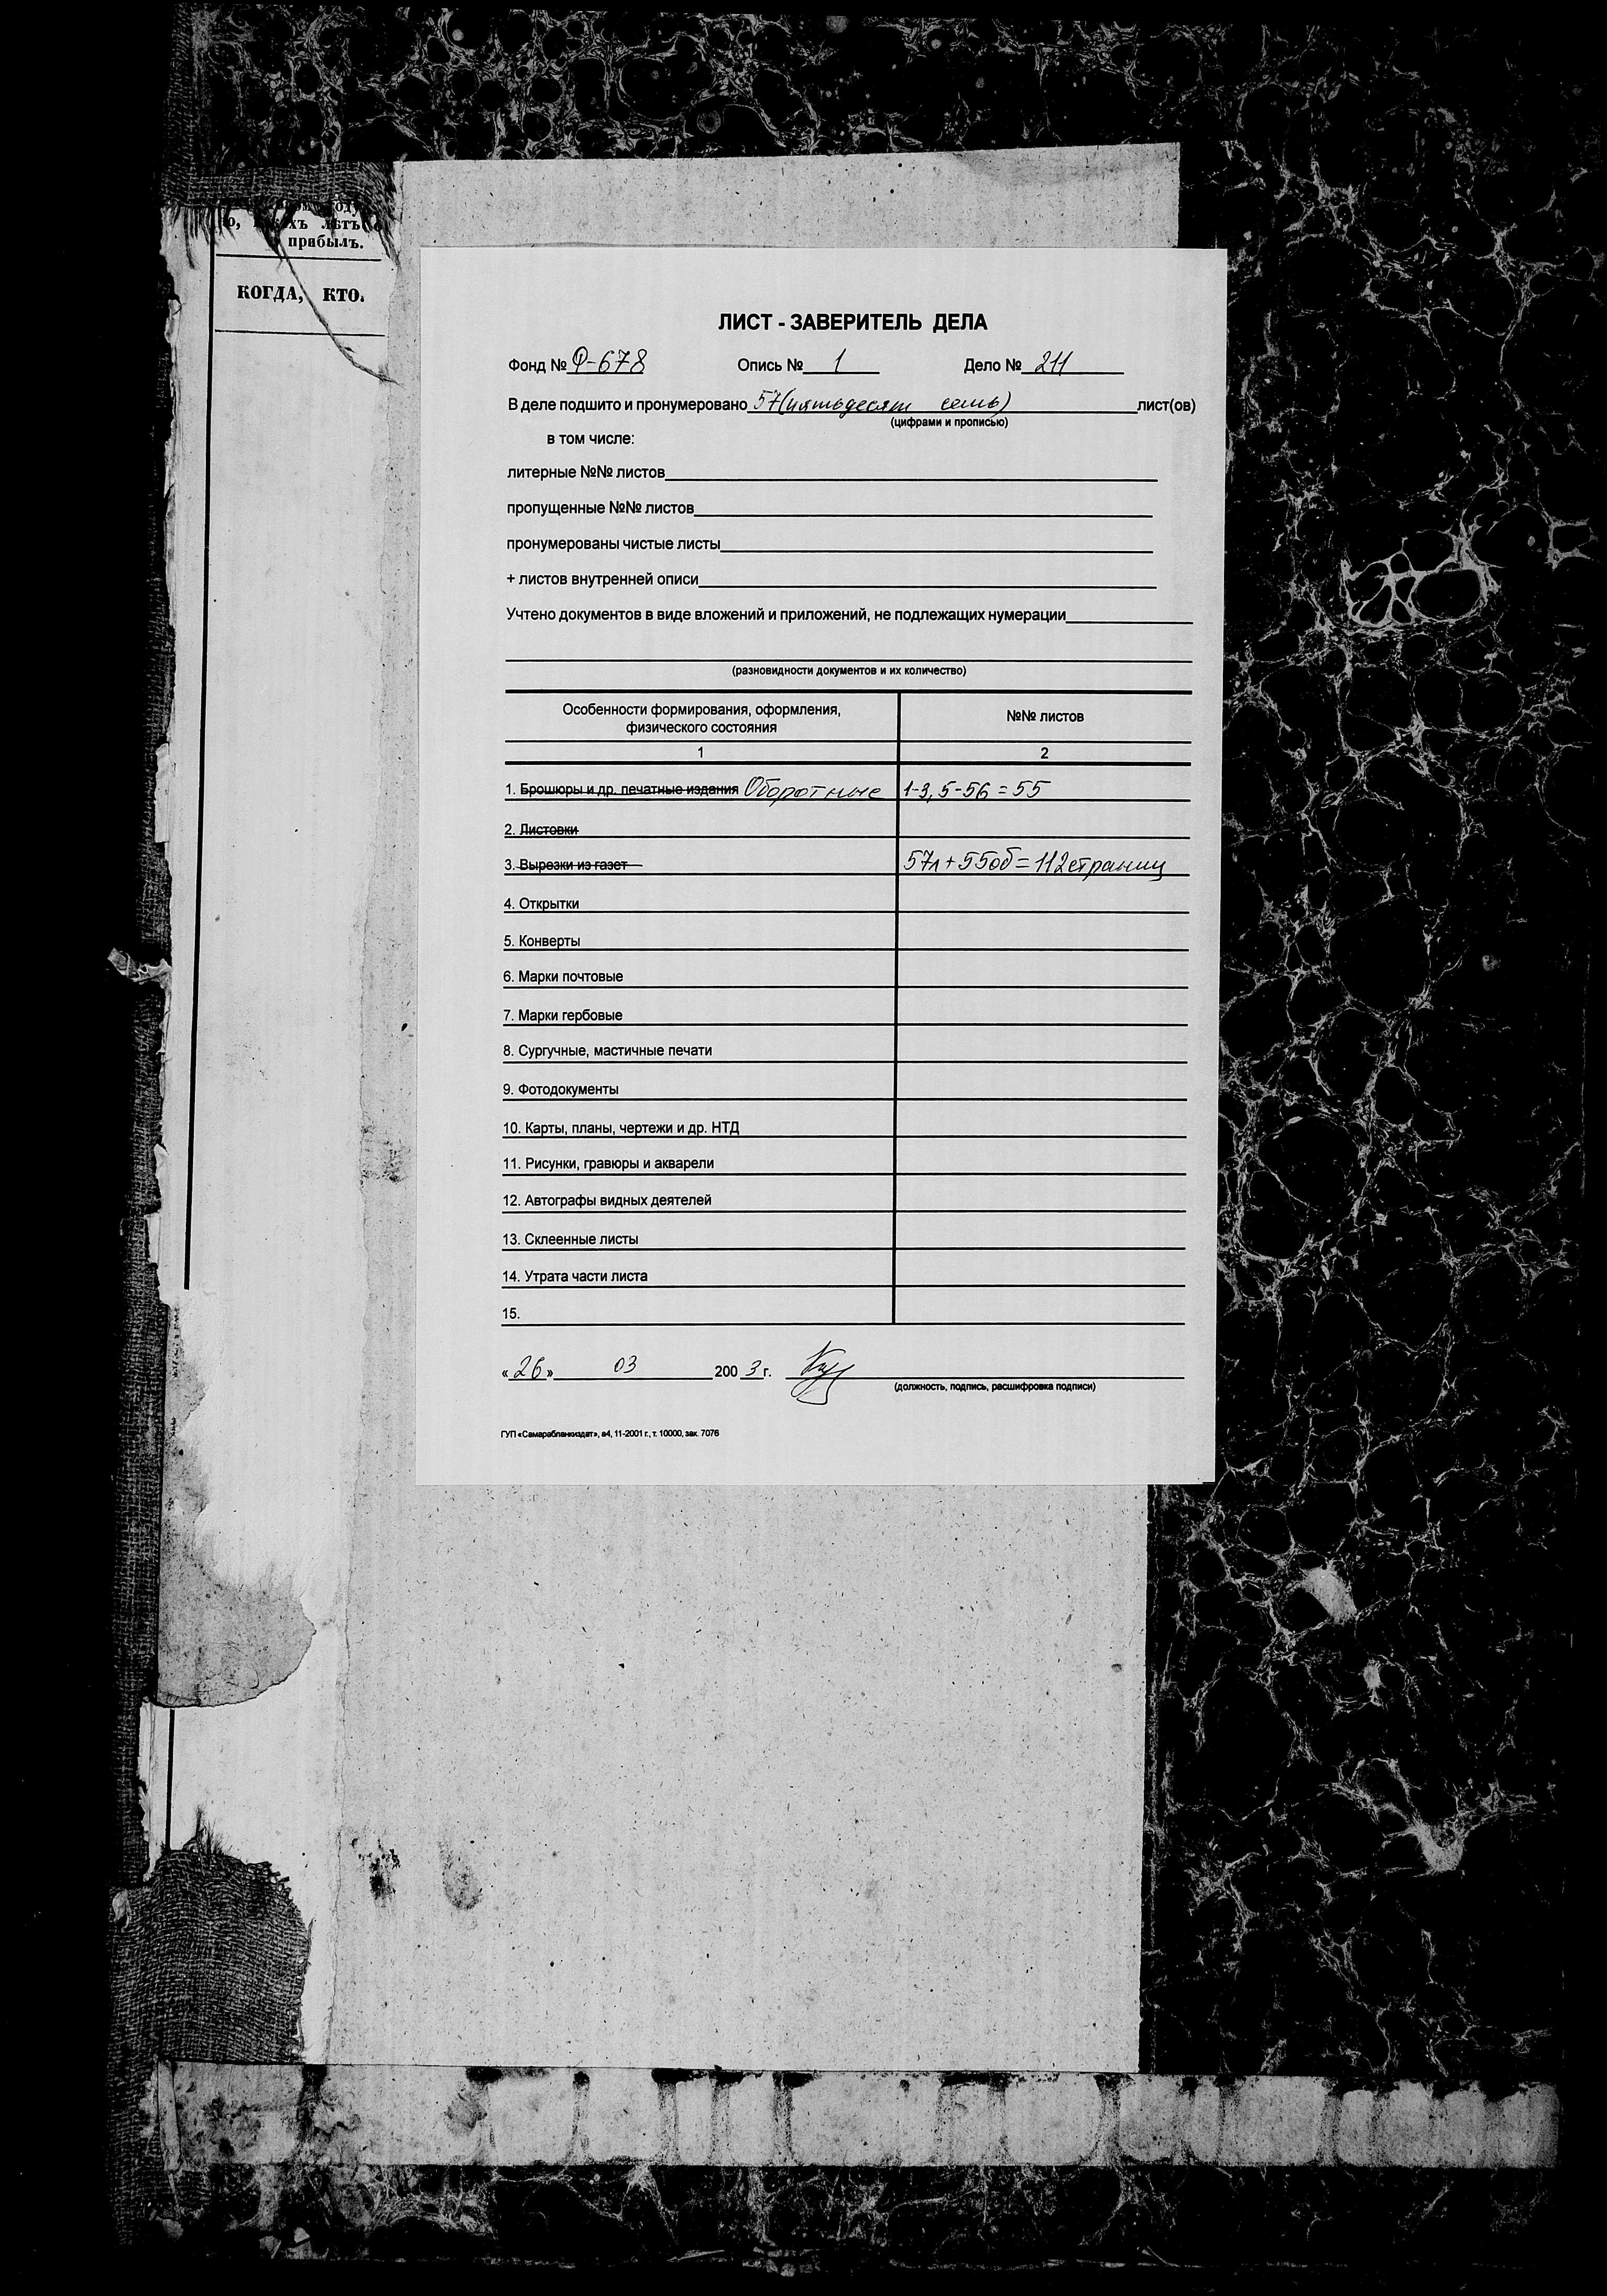 лѣтъ
прибылъ.
КОГДА, КТО.
ЛИСТ - ЗАВЕРИТЕЛЬ ДЕЛА
Фонд № Ф-678 Опись № 1 Дело № 211
В деле подшито и пронумеровано 57 (пятьдесят семь) лист(ов)
(цифрами и прописью)
в том числе:
литерные №№ листов
пропущенные №№ листов
пронумерованы чистые листы
+ листов внутренней описи
Учтено документов в виде вложений и приложений, не подлежащих нумерации
(разновидности документов и их количество)
Особенности формирования, оформления, физического состояния №№ листов
1 2
1. Брошюры и др. печатные издания Оборотные 1-3, 5-56 = 55
2. Листовки
3. Вырезки из газет 57л + 55об = 112 страниц
4. Открытки
5. Конверты
6. Марки почтовые
7. Марки гербовые
8. Сургучные, мастичные печати
9. Фотодокументы
10. Карты, планы, чертежи и др. НТД
11. Рисунки, гравюры и акварели
12. Автографы видных деятелей
13. Склеенные листы
14. Утрата части листа
15.
« 26 » 03 200 3 г.
(должность, подпись, расшифровка подписи)
ГУП «Самарабланкиздат», а4, 11-2001 г., т. 10000, зак. 7076